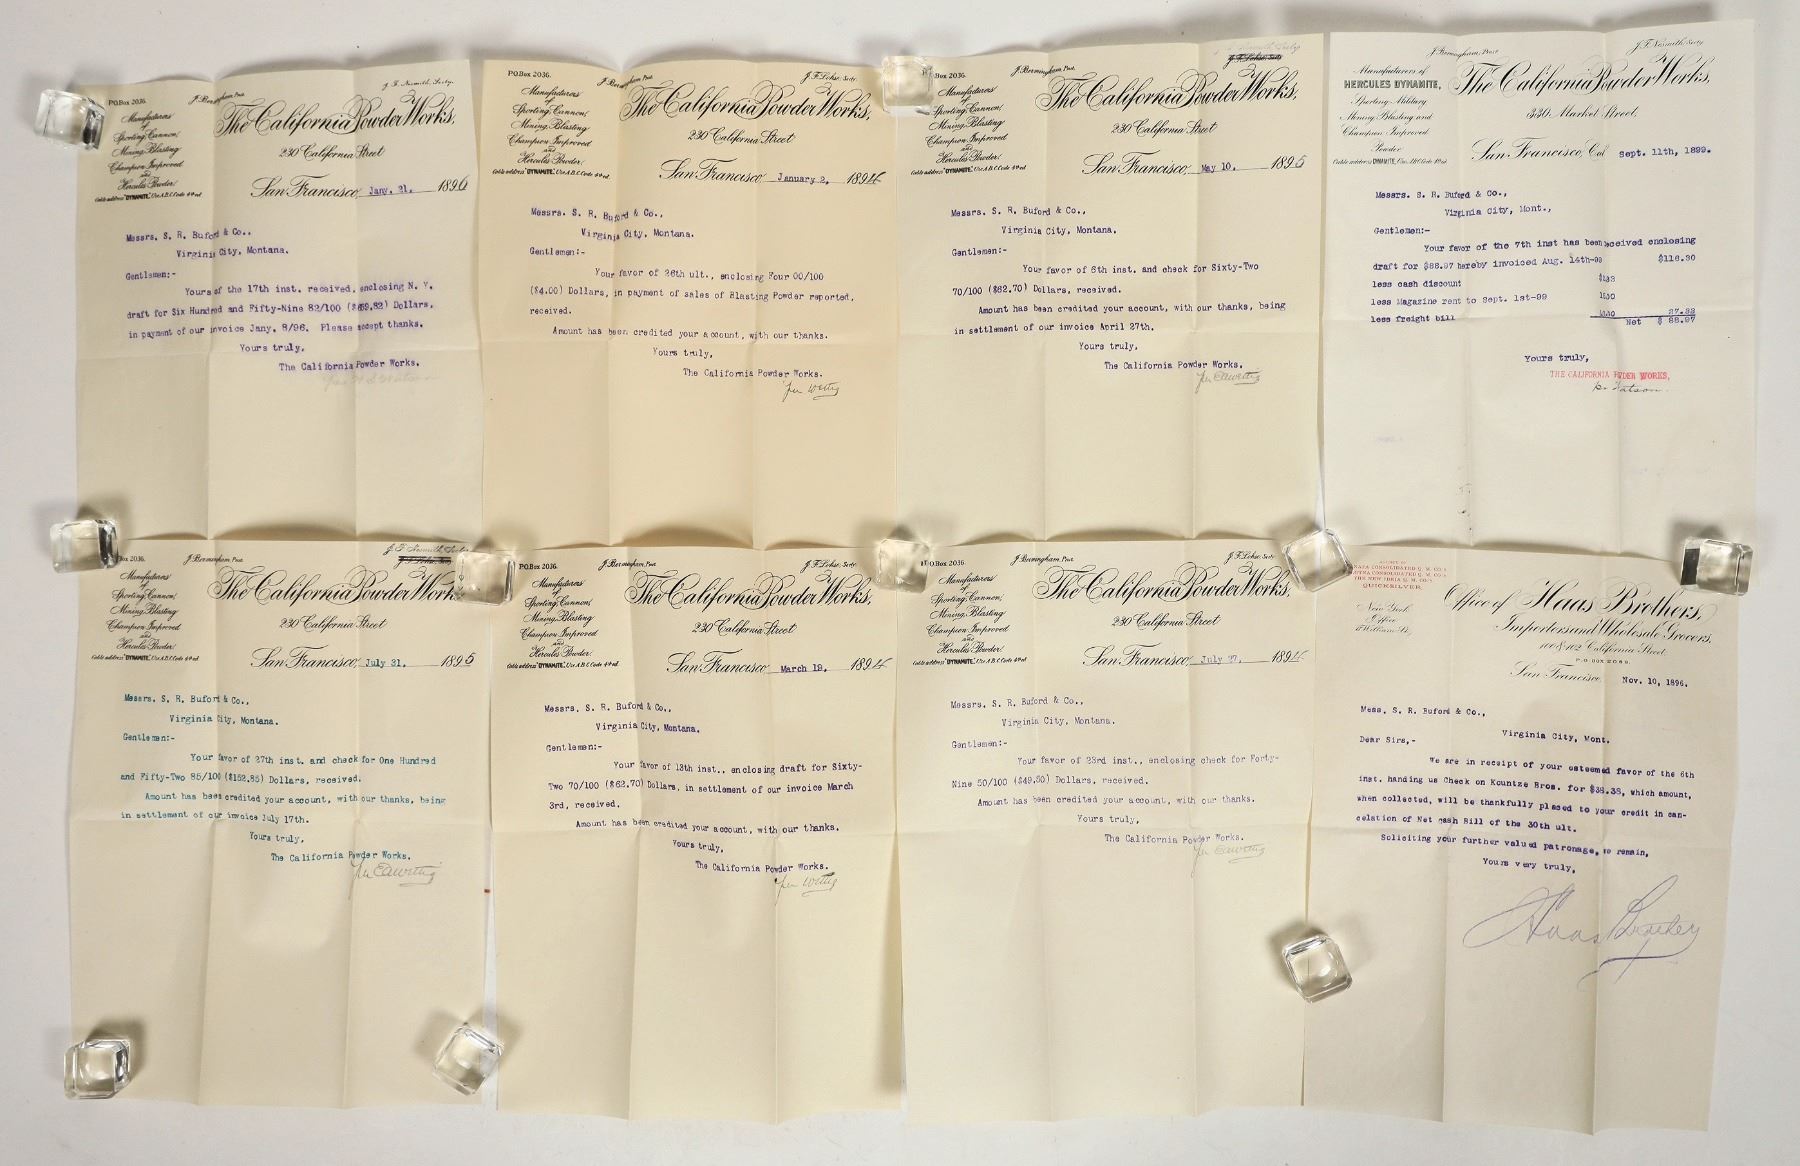 P.O.Box 2036.
J. Bermingham, Prest.
J. F. Nesmith, Secty.
Manufacturers
of
Sporting, Cannon,
Mining, Blasting
Champion Improved
and
Hercules Powder.
Cable address "DYNAMITE," Use A.B.C. Code 4th ed.
The California Powder Works,
230 California Street
San Francisco, Jany. 21, 1896
Messrs. S. R. Buford & Co.,
Virginia City, Montana.
Gentlemen:-
Yours of the 17th inst. received, enclosing N. Y.
draft for Six Hundred and Fifty-Nine 82/100 ($659.82) Dollars,
in payment of our invoice Jany. 8/96. Please accept thanks.
Yours truly,
The California Powder Works.
P.O.Box 2036.
J. Bermingham, Prest.
J. F. Lohse, Secty.
Manufacturers
of
Sporting, Cannon,
Mining, Blasting
Champion Improved
and
Hercules Powder.
Cable address "DYNAMITE," Use A.B.C. Code 4th ed.
The California Powder Works,
230 California Street
San Francisco, January 2, 1894
Messrs. S. R. Buford & Co.,
Virginia City, Montana.
Gentlemen:-
Your favor of 26th ult., enclosing Four 00/100
($4.00) Dollars, in payment of sales of Blasting Powder reported,
received.
Amount has been credited your account, with our thanks.
Yours truly,
The California Powder Works.
Box 2036.
J. Bermingham, Prest.
J. F. Lohse, Secty
Manufacturers
of
Sporting, Cannon,
Mining, Blasting
Champion Improved
and
Hercules Powder.
Cable address "DYNAMITE," Use A.B.C. Code 4th ed.
The California Powder Works,
230 California Street
San Francisco, May 10, 1895
Messrs. S. R. Buford & Co.,
Virginia City, Montana.
Gentlemen:-
Your favor of 6th inst. and check for Sixty-Two
70/100 ($62.70) Dollars, received.
Amount has been credited your account, with our thanks, being
in settlement of our invoice April 27th.
Yours truly,
The California Powder Works.
J. Bermingham, Prest
J. F. Nesmith, Secty
Manufacturers of
HERCULES DYNAMITE,
Sporting, Military
Mining Blasting and
Champion Improved
Powder
Cable address DYNAMITE, Use A.B.C. Code 4th ed.
The California Powder Works,
330, Market Street,
San Francisco, Cal Sept. 11th, 1899.
Messrs. S. R. Buford & Co.,
Virginia City, Mont.,
Gentlemen:-
Your favor of the 7th inst has been received enclosing
draft for $88.97 hereby invoiced Aug. 14th-99 $116.30
less cash discount
less Magazine rent to Sept. 1st-99
less freight bill 27.33
Net $ 88.97
Yours truly,
THE CALIFORNIA POWDER WORKS,
Watson.
Box 2036.
J. Bermingham, Prest.
J. F. Nesmith, Secty
Manufacturers
of
Sporting, Cannon,
Mining, Blasting
Champion Improved
and
Hercules Powder.
Cable address "DYNAMITE," Use A.B.C. Code 4th ed.
The California Powder Work
230 California Street
San Francisco, July 31, 1895
Messrs. S. R. Buford & Co.,
Virginia City, Montana.
Gentlemen:-
Your favor of 27th inst. and check for One Hundred
and Fifty-Two 85/100 ($152.85) Dollars, received.
Amount has been credited your account, with our thanks, being
in settlement of our invoice July 17th.
Yours truly,
The California Powder Works.
P.O.Box 2036.
J. Bermingham, Prest.
J. F. Lohse, Secty.
Manufacturers
of
Sporting, Cannon,
Mining, Blasting
Champion Improved
and
Hercules Powder.
Cable address "DYNAMITE," Use A.B.C. Code 4th ed.
The California Powder Works,
230 California Street
San Francisco, March 19, 1894
Messrs. S. R. Buford & Co.,
Virginia City, Montana.
Gentlemen:-
Your favor of 13th inst., enclosing draft for Sixty-
Two 70/100 ($62.70) Dollars, in settlement of our invoice March
3rd, received.
Amount has been credited your account, with our thanks.
Yours truly,
The California Powder Works.
P.O.Box 2036.
J. Bermingham, Prest.
J. F. Lohse, Secty
Manufacturers
of
Sporting, Cannon,
Mining, Blasting
Champion Improved
and
Hercules Powder.
Cable address "DYNAMITE," Use A.B.C. Code 4th ed.
The California Powder Works,
230 California Street
San Francisco, July 27, 1894
Messrs. S. R. Buford & Co.,
Virginia City, Montana.
Gentlemen:-
Your favor of 23rd inst., enclosing check for Forty-
Nine 50/100 ($49.50) Dollars, received.
Amount has been credited your account, with our thanks.
Yours truly,
The California Powder Works.
CONSOLIDATED Q. M. CO.
CONSOLIDATED Q. M. CO.
THE NEW IDRIA Q. M. CO.
QUICKSILVER.
New York
Office
William St.
Office of Haas Brothers,
Importers and Wholesale Grocers,
100 & 102 California Street
P.O. BOX 2089.
San Francisco, Nov. 10, 1896.
Mess. S. R. Buford & Co.,
Virginia City, Mont.
Dear Sirs,-
We are in receipt of your esteemed favor of the 6th
inst. handing us Check on Kountze Bros. for $38.38, which amount,
when collected, will be thankfully placed to your credit in can-
celation of Net cash Bill of the 30th ult.
Soliciting your further valued patronage, we remain,
Yours very truly,
Haas Brothers